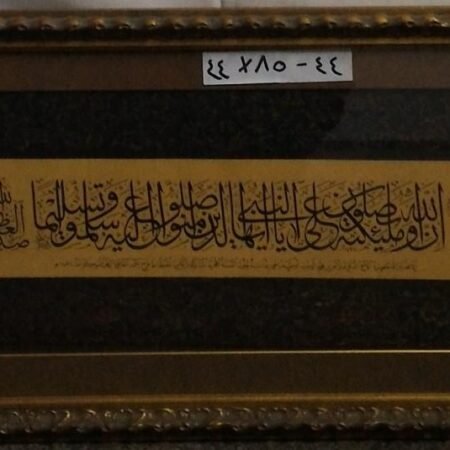 ٤٤ × ٨٥ - ٤٤
ان الله وملئكته يصلون على النبى يا ايها الذين امنوا صلوا عليه وسلموا تسليما
صدق الله العظيم